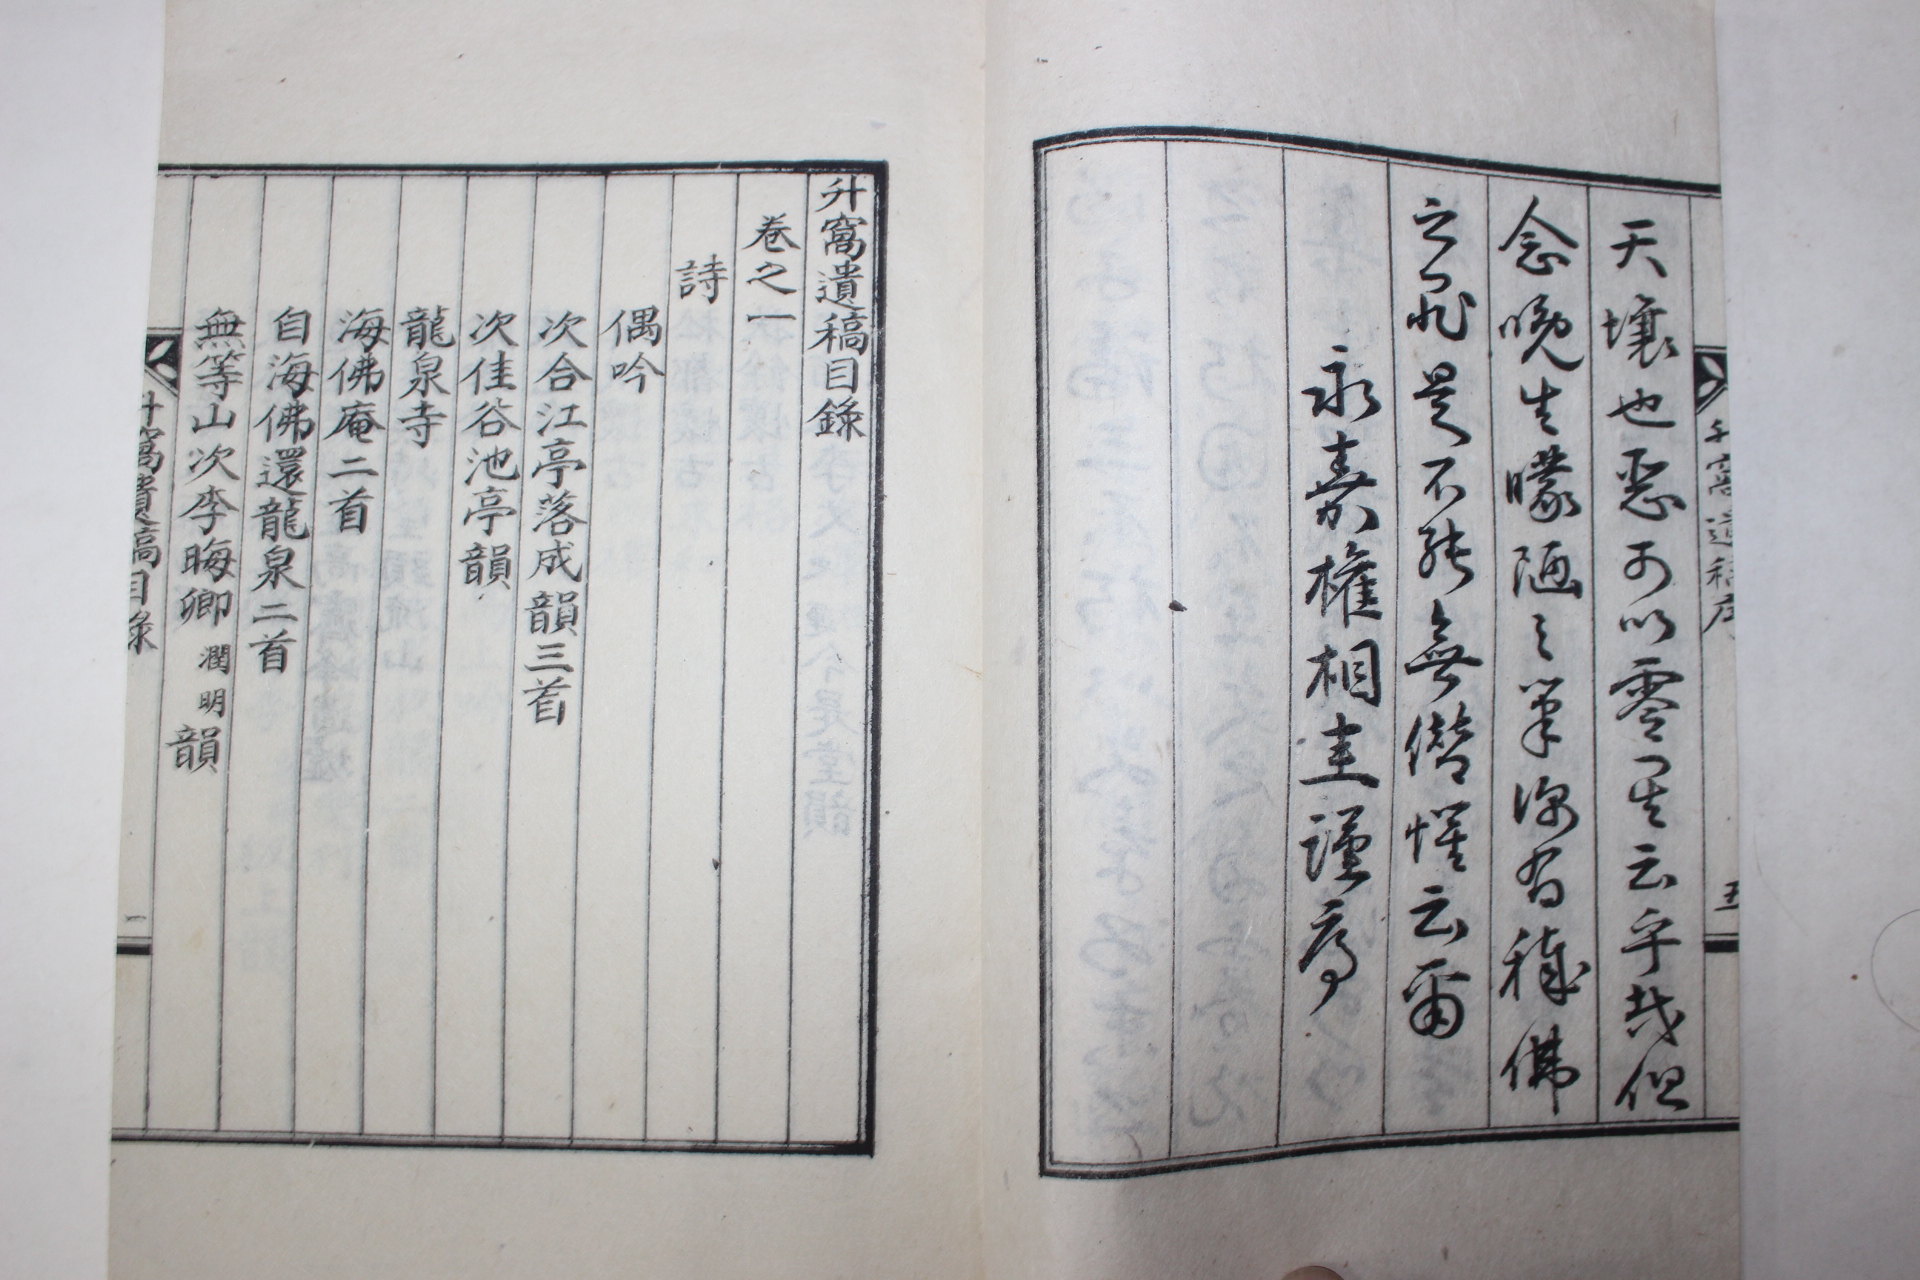 天壤也惡可以零星云乎哉但
念晚生矇陋之筆深有穢佛
之兆是不能無僭懼云爾
永嘉權相圭謹序
升窩遺稿序
五
升窩遺稿目錄
卷之一
詩
偶吟
次合江亭落成韻三首
次佳谷池亭韻
龍泉寺
海佛庵二首
自海佛還龍泉二首
無等山次李晦卿潤明韻
升窩遺稿目錄
一